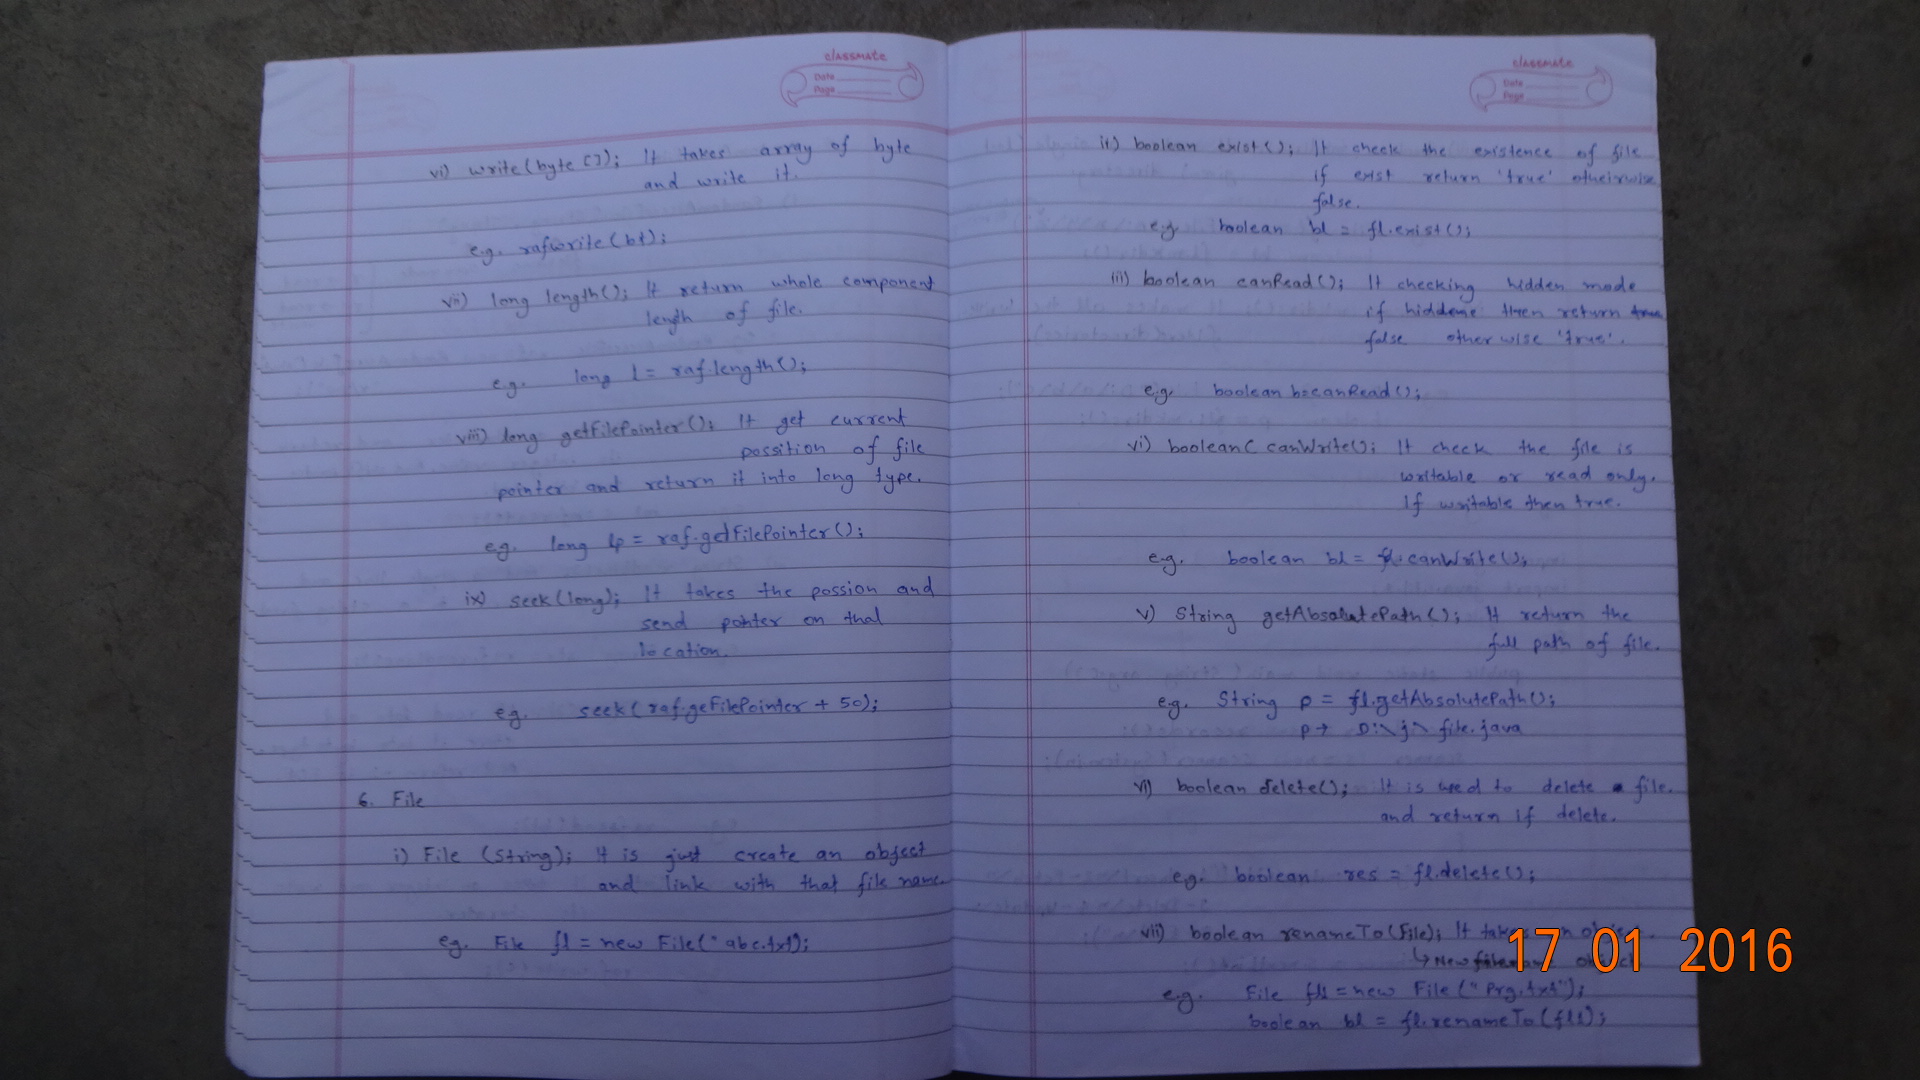 classmate
Date
Page
vi) write(byte []); It takes array of byte
and write it.
e.g. rafwrite(bt);
vii) long length(); It return whole component
length of file.
e.g. long l = raf.length();
viii) long getFilePointer(); It get current
possition of file
pointer and return it into long type.
eg. long lp = raf.getFilePointer();
ix) seek(long); It takes the possion and
send pointer on that
location.
eg. seek(raf.geFilePointer + 50);
6. File
i) File (String); It is just create an object
and link with that file name.
eg. File fl = new File("abc.txt);
classmate
Date
Page
ii) boolean exist(); It check the existence of file
if exist return 'true' otheirwise
false.
e.g boolean bl = fl.exist();
iii) boolean canRead(); It checking hidden mode
if hiddene then return true
false otherwise 'true'.
e.g. boolean b=canRead();
vi) boolean( canWrite(); It check the file is
writable or read only.
If writable then true.
e.g. boolean bl = fl.canWrite();
v) String getAbsolutePath(); It return the
full path of file.
e.g. String p = fl.getAbsolutePath();
p→ D:\j\file.java
vi) boolean delete(); It is used to delete a file.
and return if delete.
eg. boolean res = fl.delete();
vii) boolean renameTo(File); It takes an object.
↳ New filename object
e.g. File fl1 = new File("Prg.txt");
boolean bl = fl.renameTo(fl1);
17 01 2016